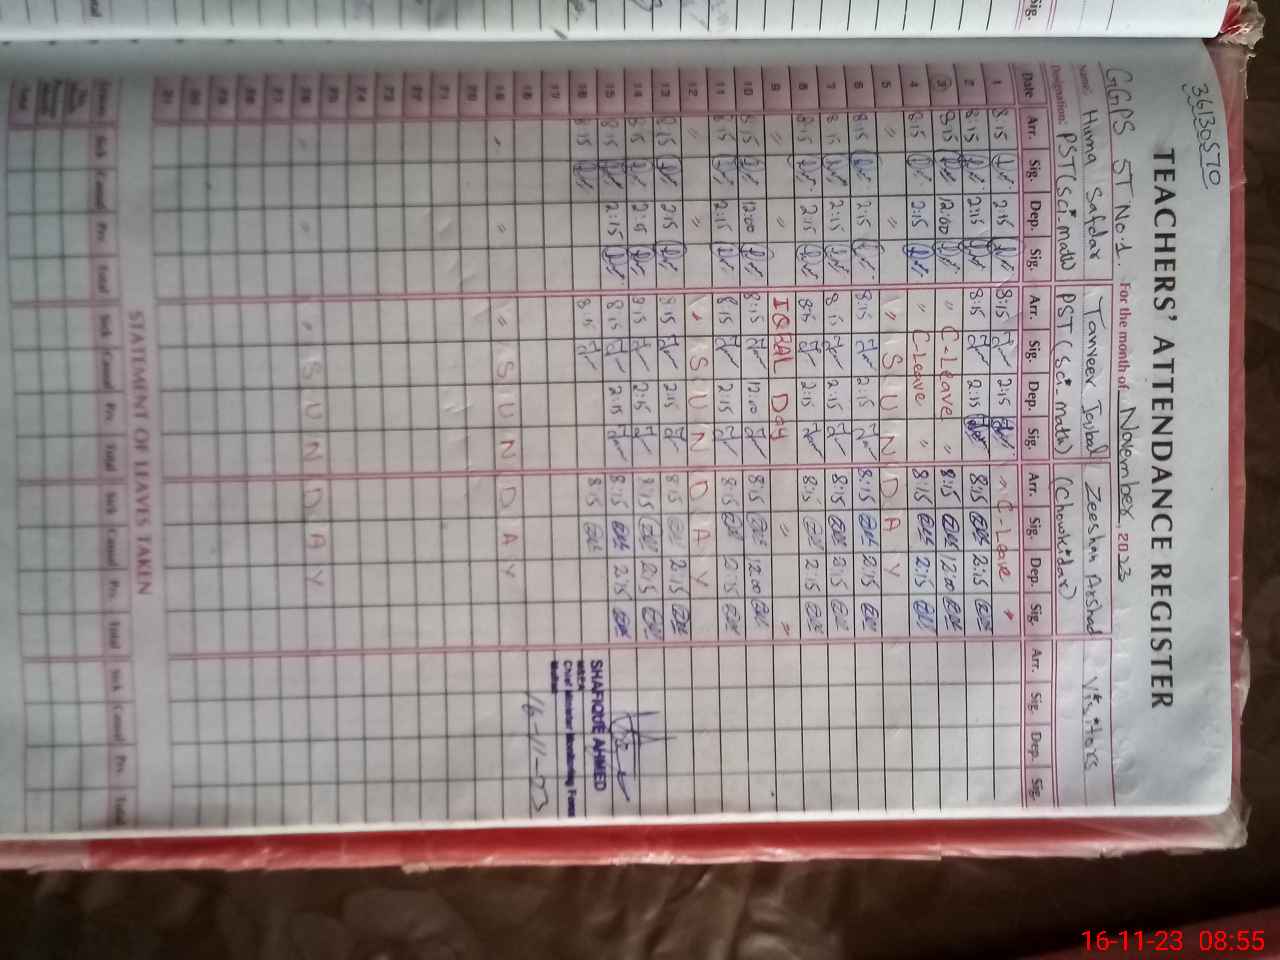 36130570
TEACHERS' ATTENDANCE REGISTER
GGPS ST No.1 For the month of November 2023
Name: Huma Safdar Tanveer Iqbal Zeeshan Arshad Visitors
Designation: PST (Sci-math) PST (Sci-math) (Chowkidar)
Date Arr. Sig. Dep. Sig. Arr. Sig. Dep. Sig. Arr. Sig. Dep. Sig. Arr. Sig. Dep. Sig.
1 8:15 2:15 8:15 2:15 " C-Leave "
2 8:15 2:15 8:15 2:15 8:15 2:15
3 8:15 12:00 " C-Leave " 8:15 12:00
4 8:15 2:15 " C-Leave " 8:15 2:15
5 " " " SUNDAY
6 8:15 2:15 8:15 2:15 8:15 2:15
7 8:15 2:15 8:15 2:15 8:15 2:15
8 8:15 2:15 8:15 2:15 8:15 2:15
9 " " IQBAL Day " "
10 8:15 12:00 8:15 12:00 8:15 12:00
11 8:15 2:15 8:15 2:15 8:15 2:15
12 " " " SUNDAY
13 8:15 2:15 8:15 2:15 8:15 2:15
14 8:15 2:15 8:15 2:15 8:15 2:15
15 8:15 2:15 8:15 2:15 8:15 2:15
16 8:15 8:15 8:15
SHAFIQUE AHMED
Chief Minister Monitoring Force
17
18
16-11-23
19 " " " SUNDAY
20
21
22
23
24
25
26 " " " SUNDAY
27
28
29
30
31
STATEMENT OF LEAVES TAKEN
Sick Casual Prv. Total Sick Casual Prv. Total Sick Casual Prv. Total Sick Casual Prv. Total
Total
16-11-23 08:55